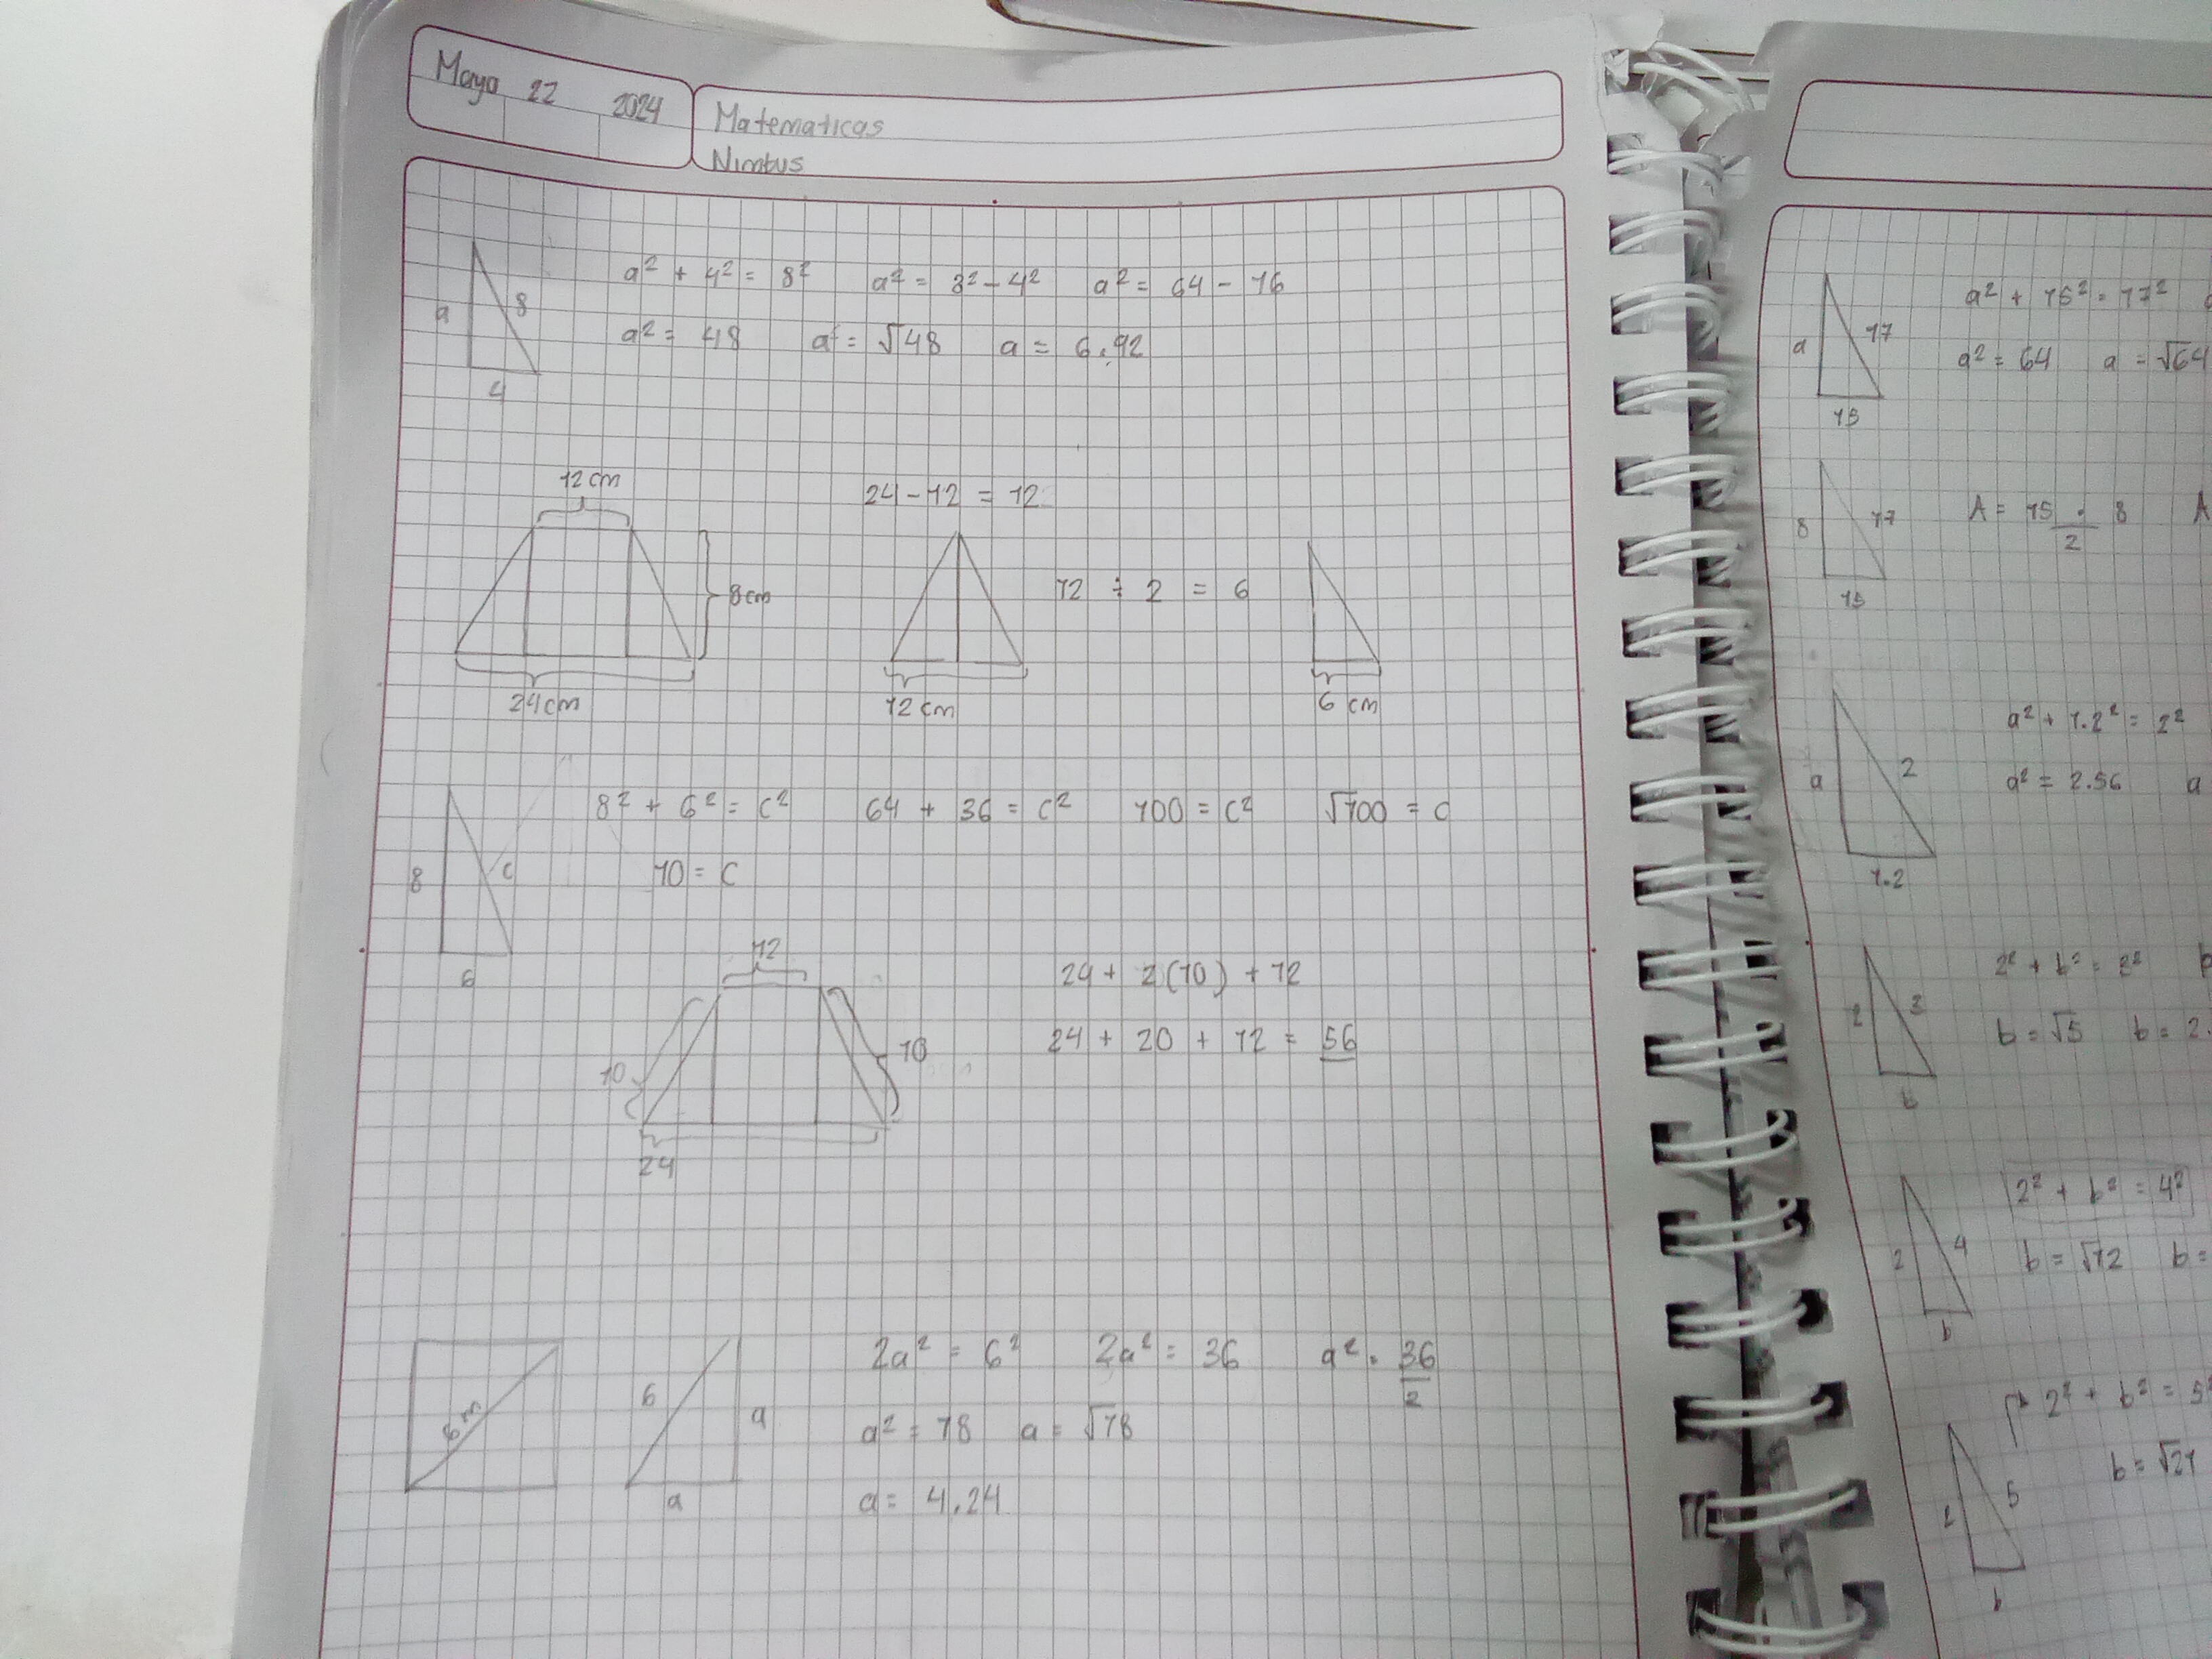 Mayo 22 2024
Matematicas
Nimbus
a² + 4² = 8² a² = 8² - 4² a² = 64 - 16
a² = 48 a = √48 a = 6.92
a
8
4
12 cm
24 - 12 = 12
8 cm
12 ÷ 2 = 6
24 cm
12 cm
6 cm
8² + 6² = c² 64 + 36 = c² 100 = c² √100 = c
10 = c
8
c
6
12
24 + 2(10) + 12
24 + 20 + 12 = 56
10
10
24
2a² = 6² 2a² = 36 a² = 36/2
a² = 18 a = √18
a = 4.24
6 m
6
a
a
a² + 15² = 17²
a² = 64 a = √64
a
17
15
A = 15 · 8 / 2 A
8
17
15
a² + 1.2² = 2²
a² = 2.56 a
a
2
1.2
2² + b² = 3² b
b = √5 b = 2.
2
3
b
2² + b² = 4²
b = √12 b =
2
4
b
2² + b² = 5²
b = √21
2
5
b